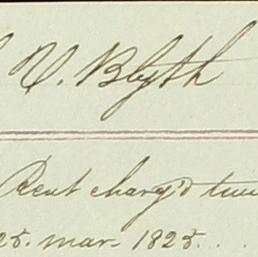 V. Blyth
Rent charg'd
25. mar. 1825. . .